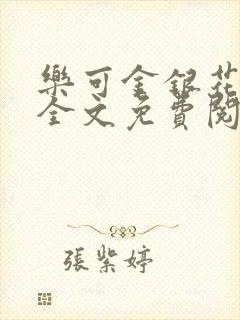 樂可金銀花
全文免費閱
張紫婷